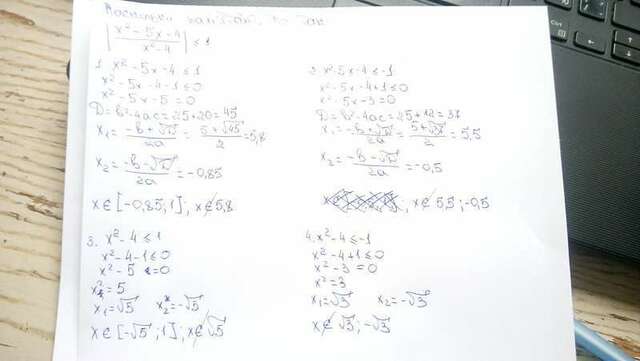 |x²-5x-4 / x²-4| ≤ 1
1. x²-5x-4≤1
x²-5x-4-1≤0
x²-5x-5=0
D=b²-4ac=25+20=45
x₁=(-b+√D)/2a=(5+√45)/2=5,8
x₂=(-b-√D)/2a=-0,85
x∈[-0,85;1]; x∉5,8
2. x²-5x-4≤-1
x²-5x-4+1≤0
x²-5x-3=0
D=b²-4ac=25+12=37
x₁=(-b+√D)/2a=(5+√37)/2=5,5
x₂=(-b-√D)/2a=-0,5
; x∉5,5;-0,5
3. x²-4≤1
x²-4-1≤0
x²-5=0
x²=5
x₁=√5 x₂=-√5
x∈[-√5;1]; x∉√5
4. x²-4≤-1
x²-4+1≤0
x²-3=0
x²=3
x₁=√3 x₂=-√3
x∉√3;-√3